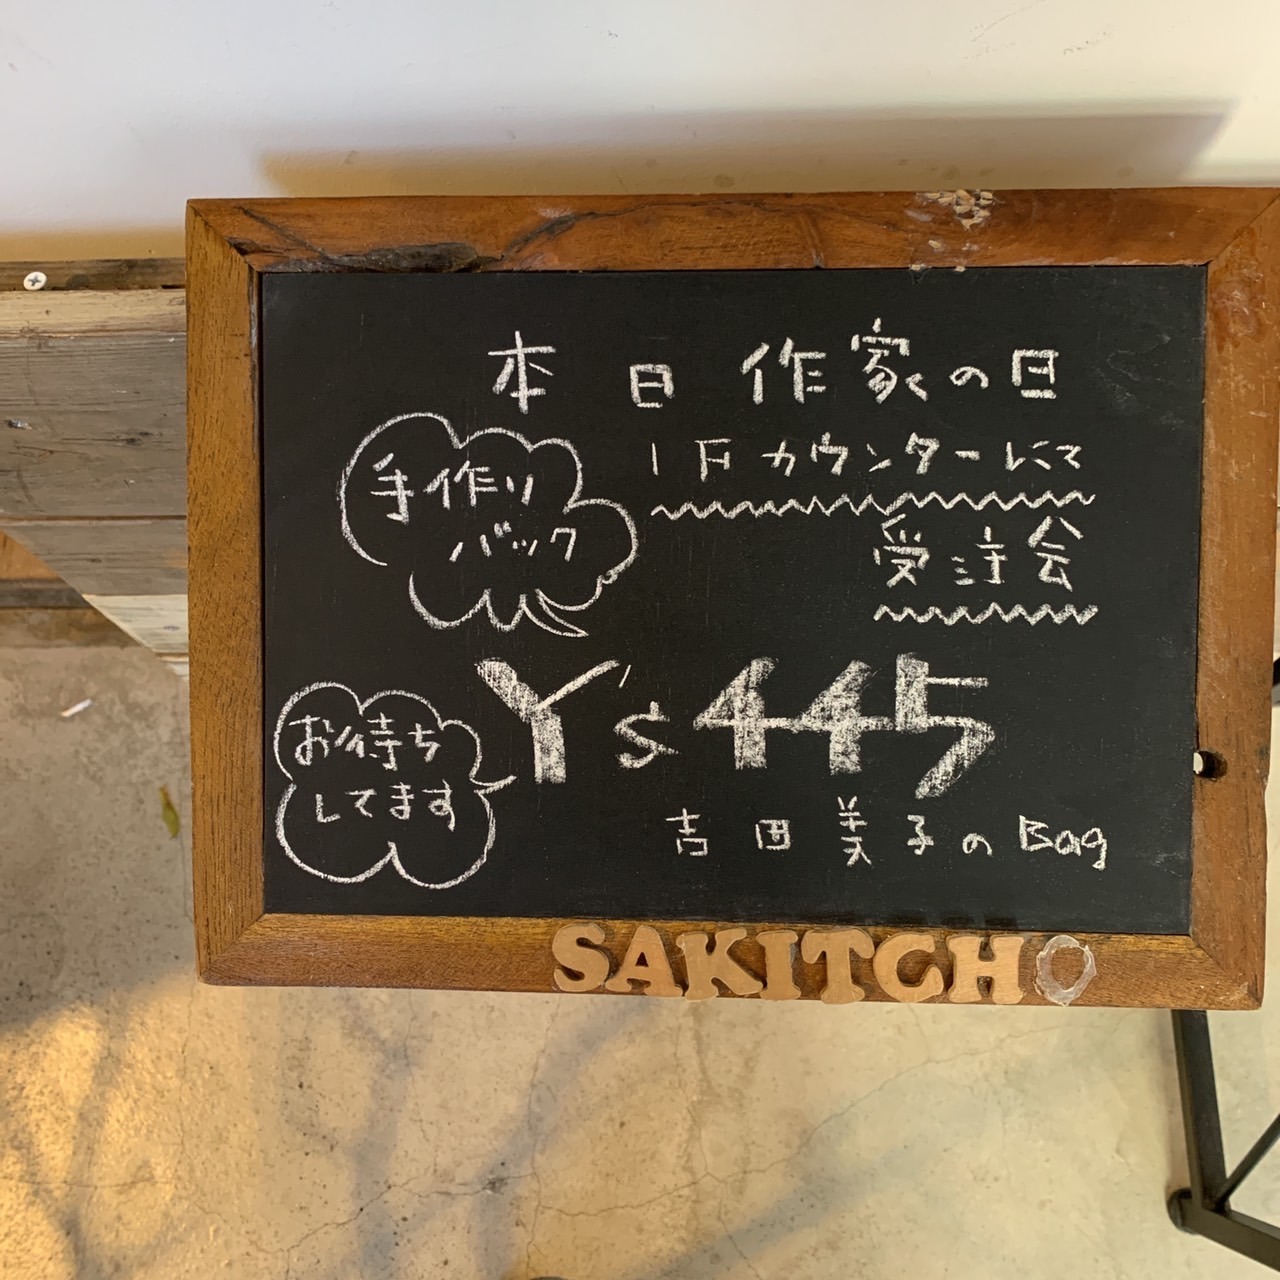 本日作家の日
1Fカウンターにて
受注会
手作り
バック
Y's 445
お待ち
してます
吉田美子のBag
SAKITCHO